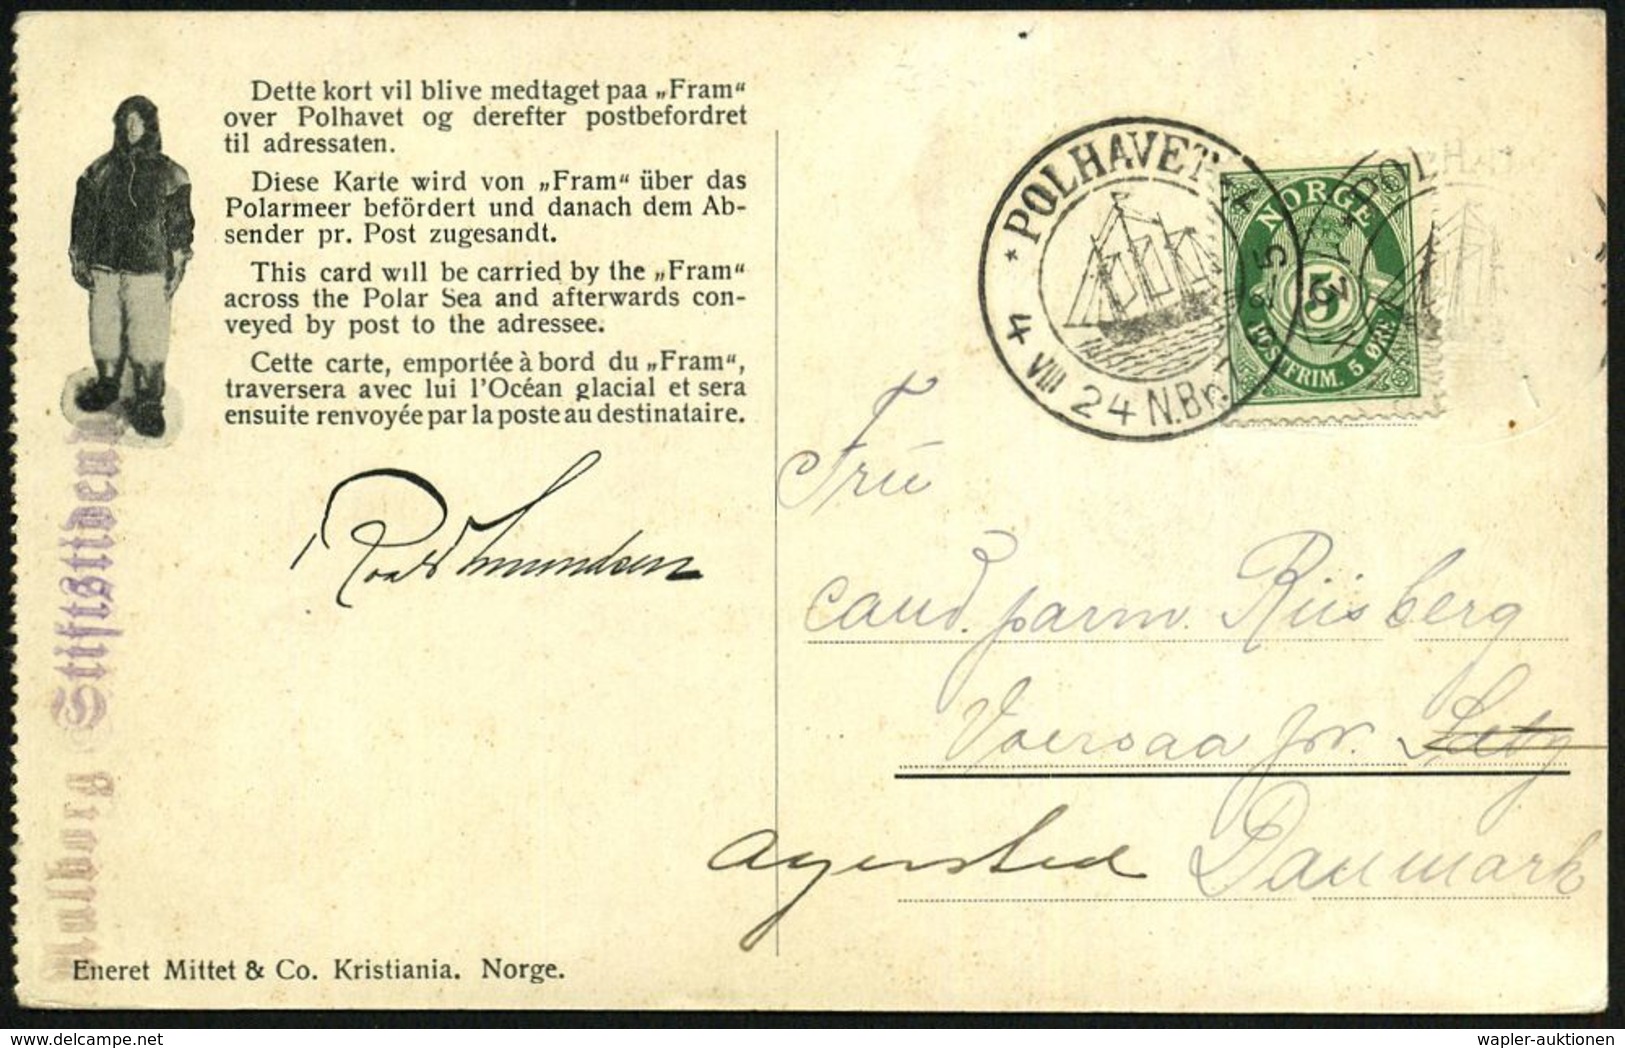 Dette kort vil blive medtaget paa „Fram“
over Polhavet og derefter postbefordret
til adressaten.
Diese Karte wird von „Fram“ über das
Polarmeer befördert und danach dem Ab-
sender pr. Post zugesandt.
This card will be carried by the „Fram“
across the Polar Sea and afterwards con-
veyed by post to the adressee.
Cette carte, emportée à bord du „Fram“,
traversera avec lui l'Océan glacial et sera
ensuite renvoyée par la poste au destinataire.
Roald Amundsen
Aalborg Stiftstidende
Eneret Mittet & Co. Kristiania. Norge.
* POLHAVET
4 VIII 24 N.Br.
NORGE
5
POSTFRIM. 5 ØRE
POLHAV
Frü
cand. parm. Riisberg
Voersaa pr.
Agersted Danmark
wapler-auktionen